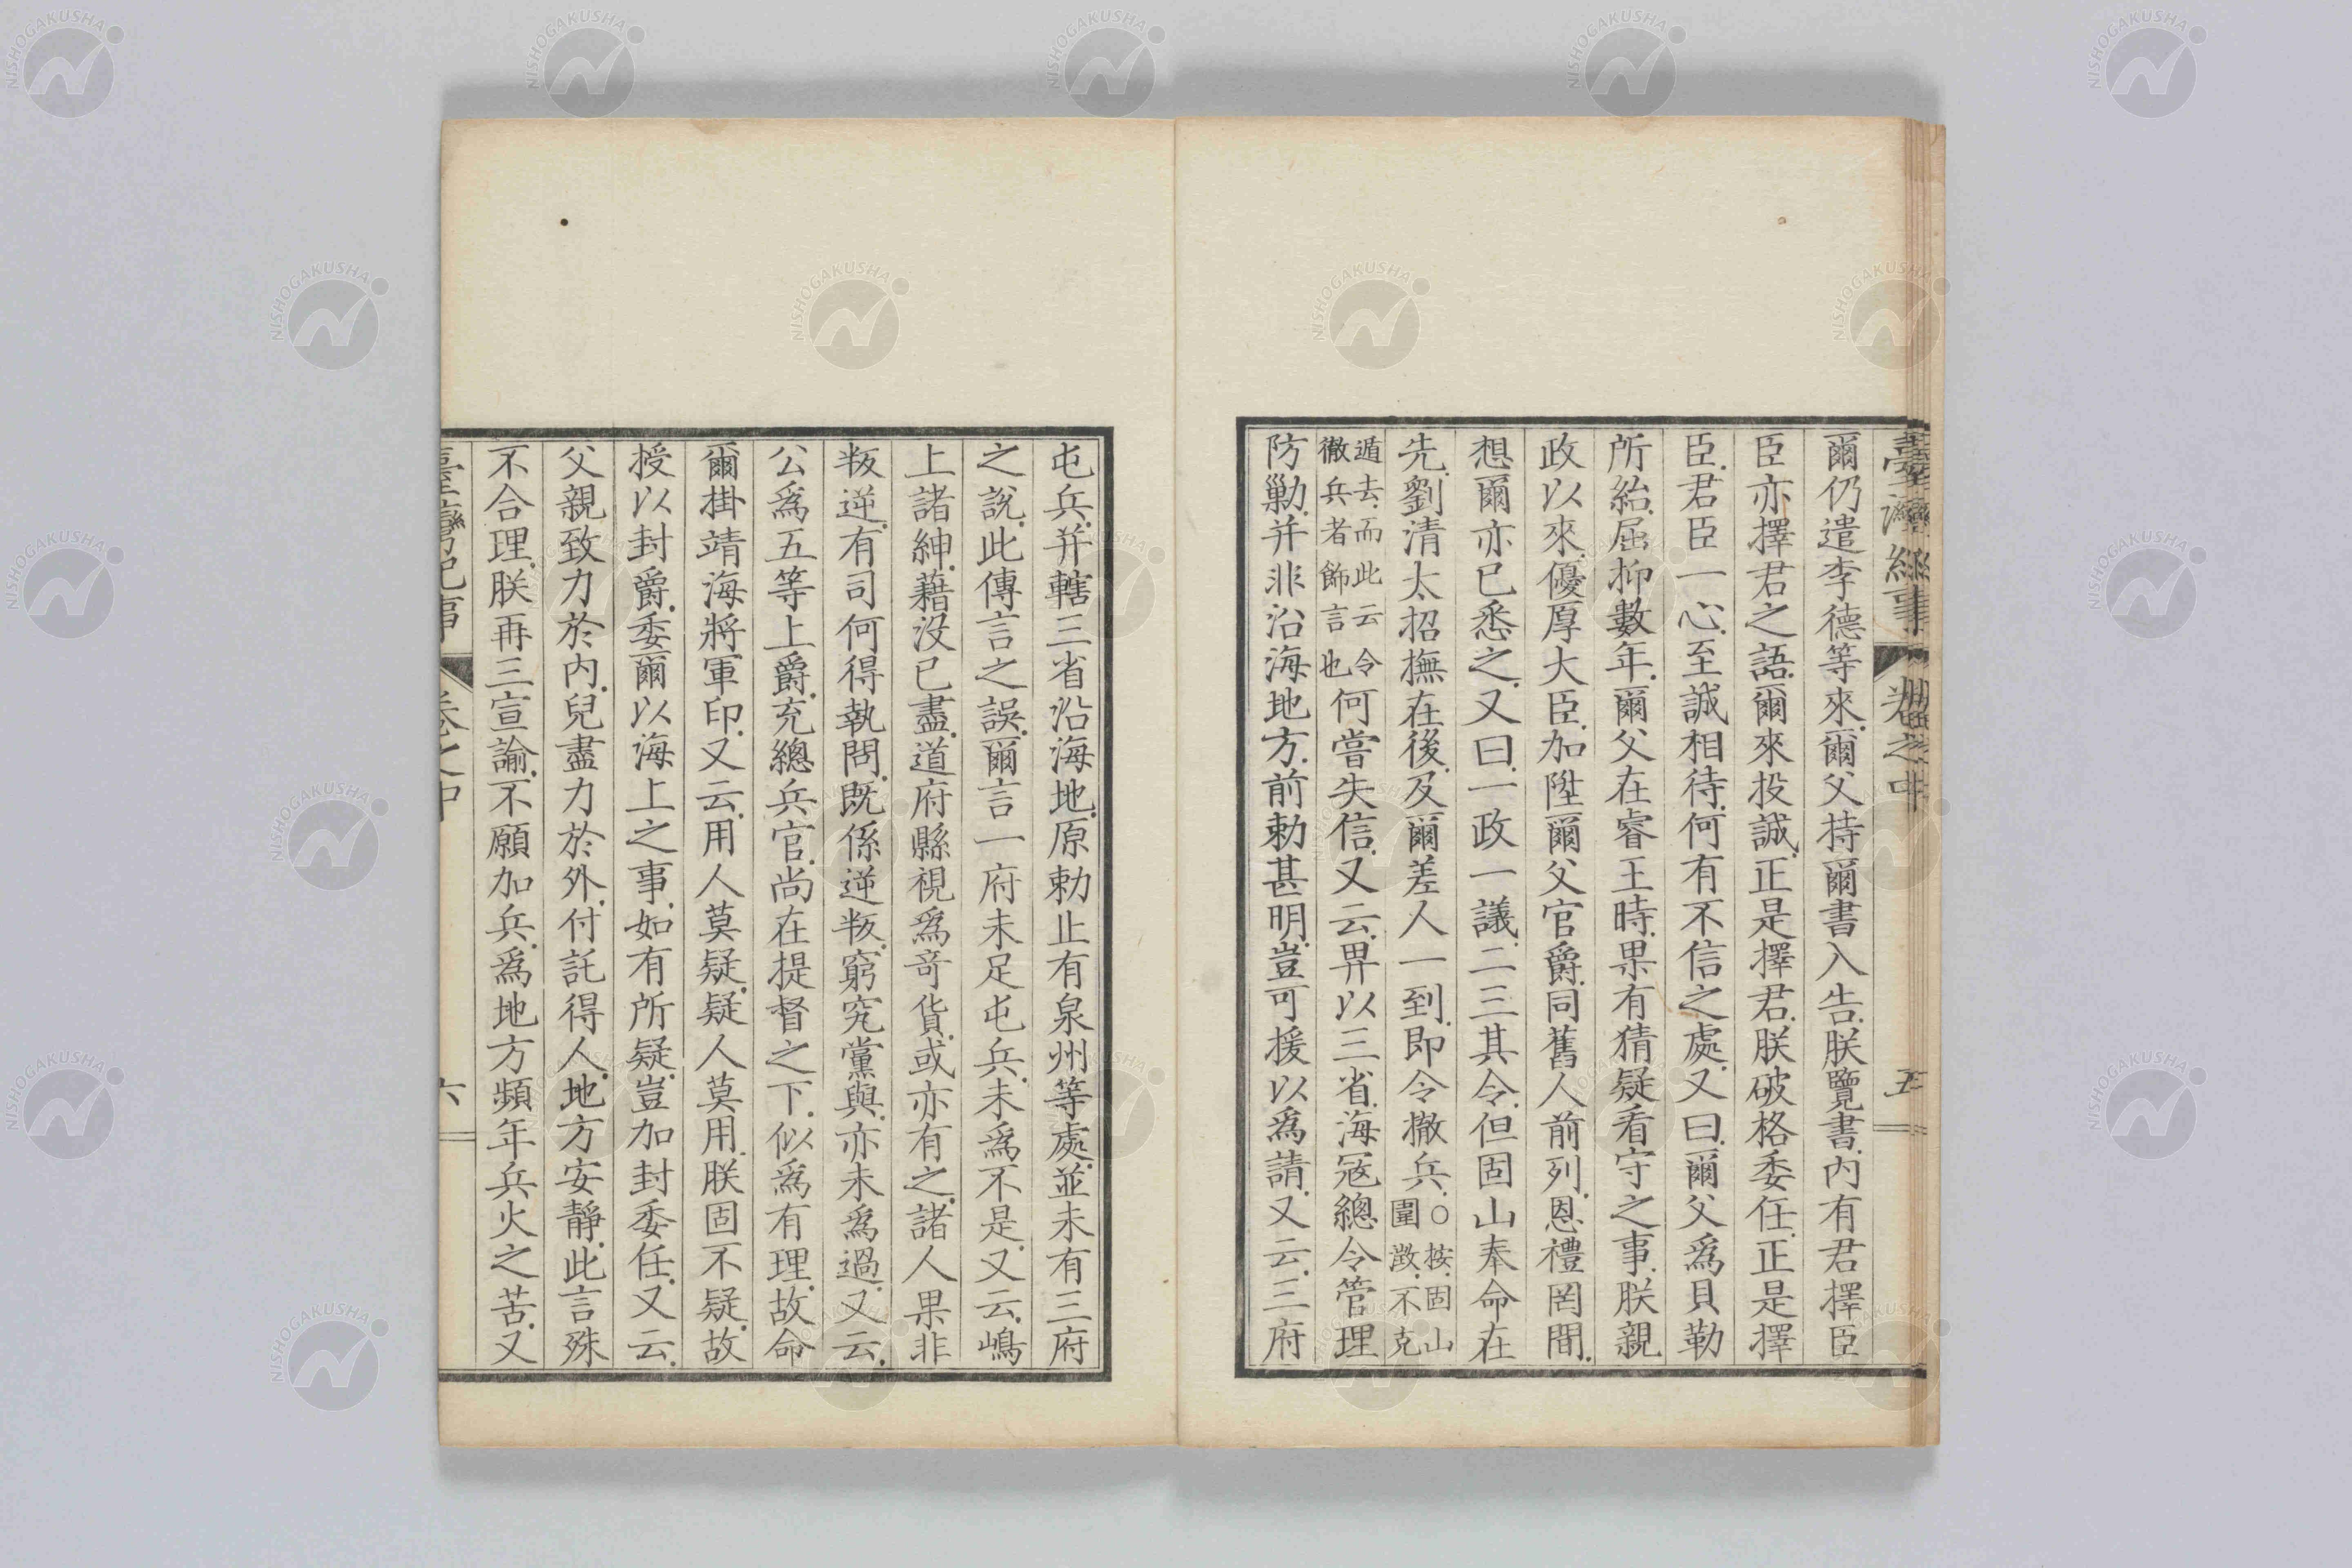 臺灣紀事 卷之中 五
爾仍遣李德等來.爾父持爾書入告.朕覽書.內有君擇臣
臣亦擇君之語.爾來投誠.正是擇君.朕破格委任.正是擇
臣.君臣一心.至誠相待.何有不信之處.又曰.爾父爲貝勒
所紿.屈抑數年.爾父在睿王時.果有猜疑看守之事.朕親
政以來.優厚大臣.加陞爾父官爵.同舊人前列.恩禮罔間.
想爾亦已悉之.又曰.一政一議.二三其令.但固山奉命在
先.劉清太招撫在後.及爾差人一到.卽令撤兵.○按.固山圍漵.不克
遁去.而此云令徹兵者飾言也何嘗失信.又云.畀以三省.海寇總令管理
防勦.并非沿海地方.前勅甚明.豈可援以爲請.又云.三府
屯兵.并轄三省沿海地.原勅止有泉州等處.並未有三府
之說.此傳言之誤.爾言一府未足屯兵.未爲不是.又云.嶋
上諸紳.藉沒已盡.道府縣視爲奇貨.或亦有之.諸人果非
叛逆.有司何得執問.既係逆叛.窮究黨與.亦未爲過.又云.
公爲五等上爵.充總兵官.尚在提督之下.似爲有理.故命
爾掛靖海將軍印.又云.用人莫疑.疑人莫用.朕固不疑.故
授以封爵.委爾以海上之事.如有所疑.豈加封委任.又云.
父親致力於內.兒盡力於外.付託得人.地方安靜.此言殊
不合理.朕再三宣諭.不願加兵.爲地方頻年兵火之苦.又
臺灣紀事 卷之中 六
NISHOGAKUSHA